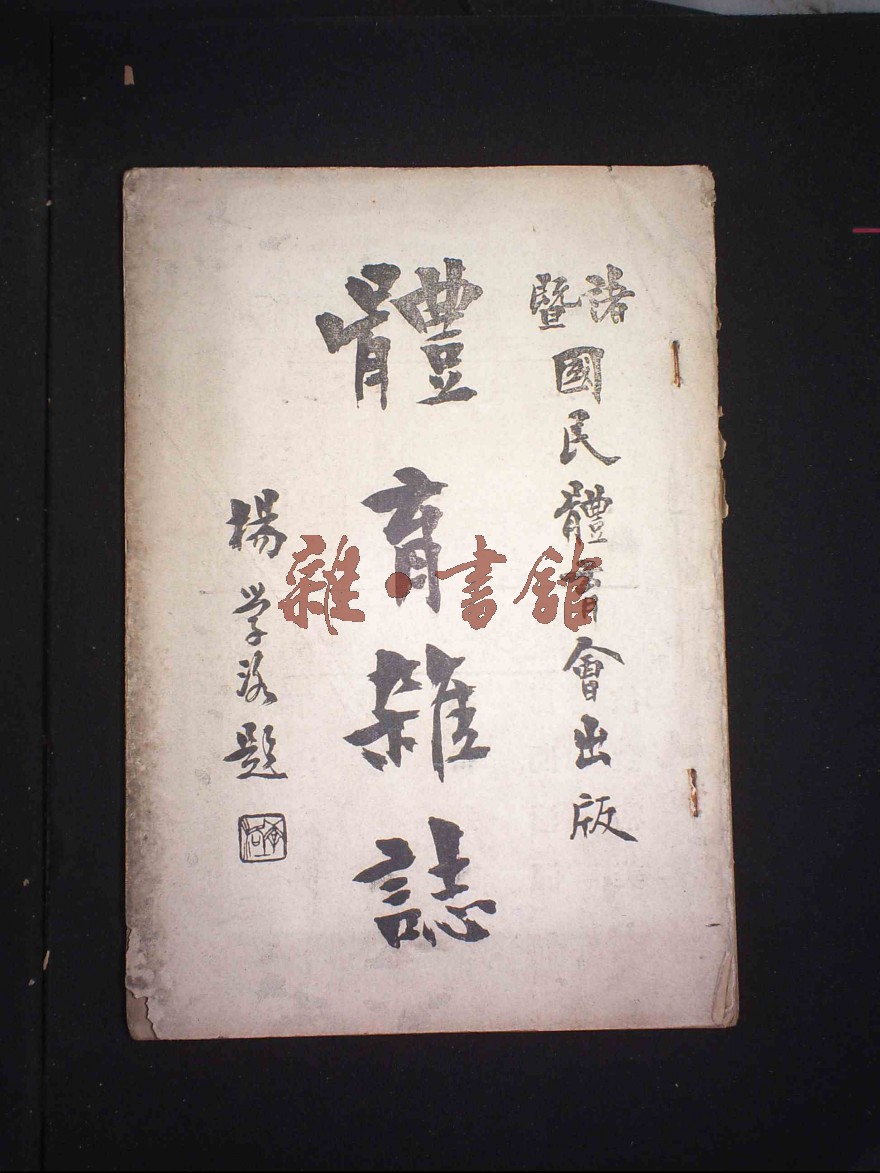 諸暨國民體育會出版
體育雜誌
楊學洛題
雜·書館